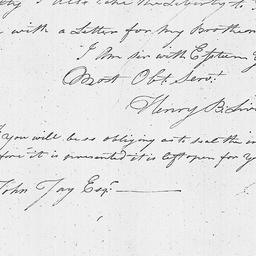 I also take the Liberty to
with a Letter for my Brother
I am sir with Esteem
Most Obt. Servt.
Henry B. Liv
you will be so obliging as to seal the in
fore it is presented it is left open for y
John Jay Esqr.